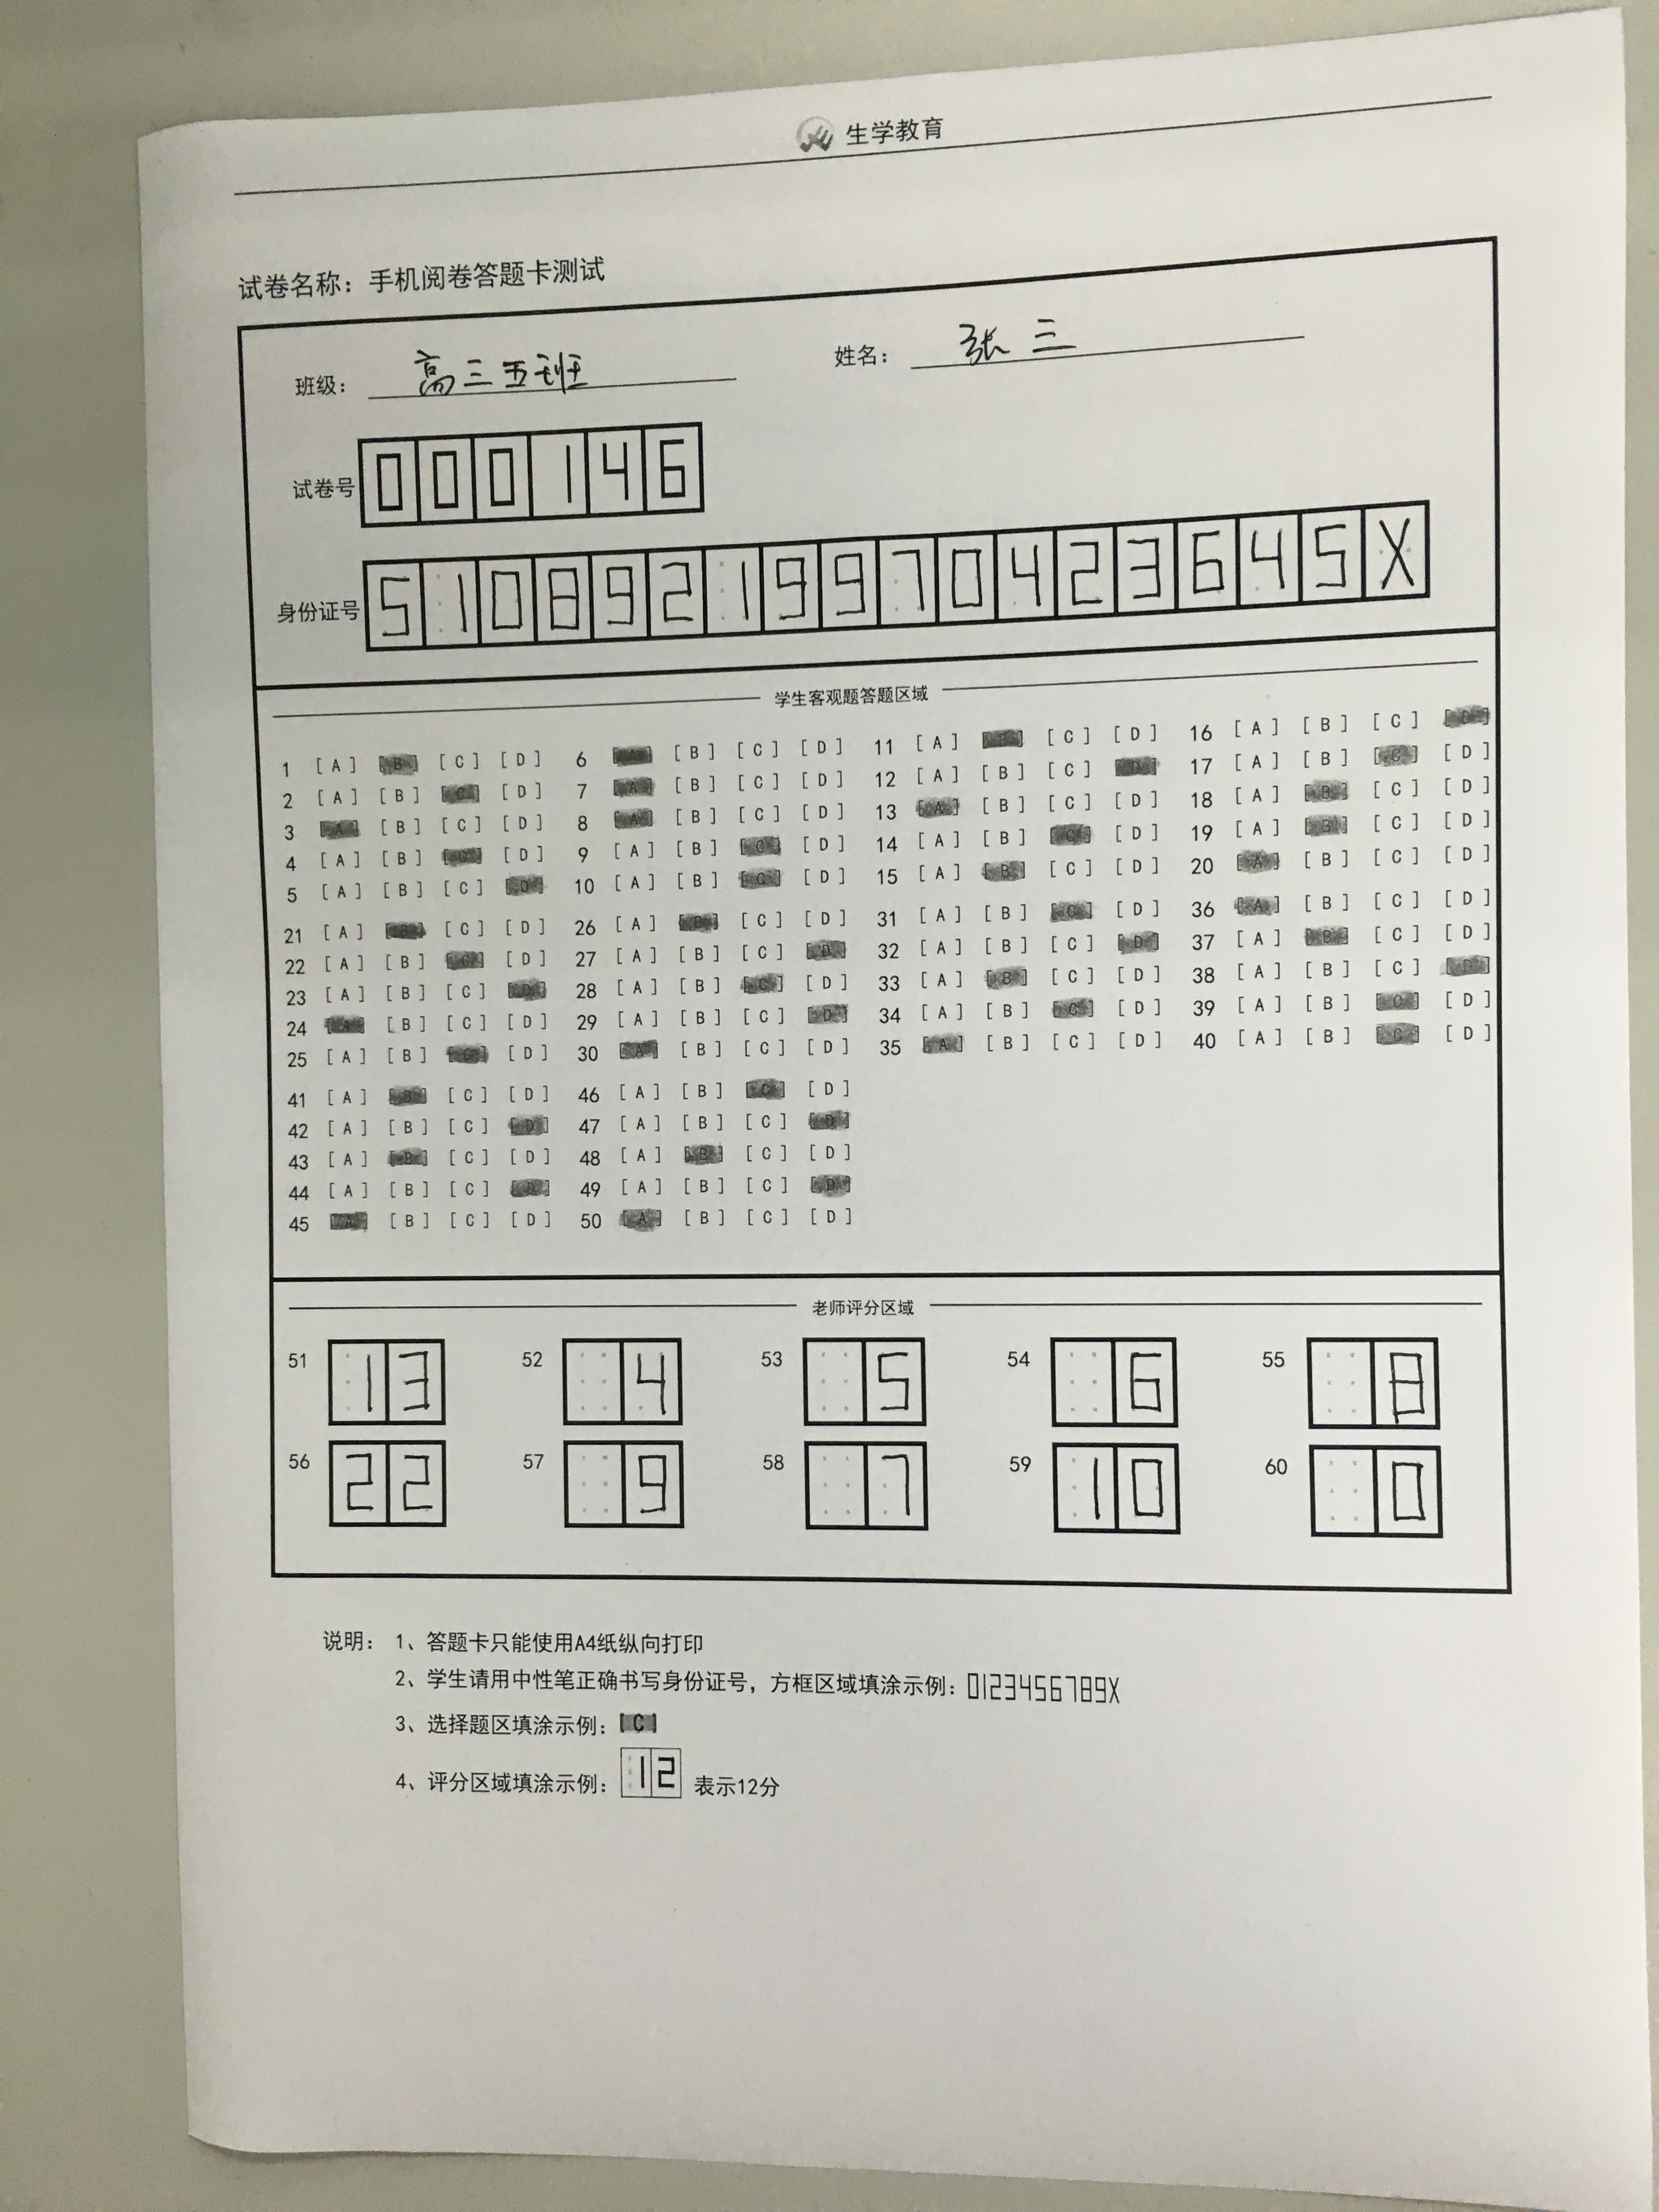 生学教育
试卷名称：手机阅卷答题卡测试
班级： 高三五班 姓名： 张三
试卷号 000146
身份证号 51089219970423645X
学生客观题答题区域
1 [A] [B] [C] [D] 6 [A] [B] [C] [D] 11 [A] [B] [C] [D] 16 [A] [B] [C] [D]
2 [A] [B] [C] [D] 7 [A] [B] [C] [D] 12 [A] [B] [C] [D] 17 [A] [B] [C] [D]
3 [A] [B] [C] [D] 8 [A] [B] [C] [D] 13 [A] [B] [C] [D] 18 [A] [B] [C] [D]
4 [A] [B] [C] [D] 9 [A] [B] [C] [D] 14 [A] [B] [C] [D] 19 [A] [B] [C] [D]
5 [A] [B] [C] [D] 10 [A] [B] [C] [D] 15 [A] [B] [C] [D] 20 [A] [B] [C] [D]
21 [A] [B] [C] [D] 26 [A] [B] [C] [D] 31 [A] [B] [C] [D] 36 [A] [B] [C] [D]
22 [A] [B] [C] [D] 27 [A] [B] [C] [D] 32 [A] [B] [C] [D] 37 [A] [B] [C] [D]
23 [A] [B] [C] [D] 28 [A] [B] [C] [D] 33 [A] [B] [C] [D] 38 [A] [B] [C] [D]
24 [A] [B] [C] [D] 29 [A] [B] [C] [D] 34 [A] [B] [C] [D] 39 [A] [B] [C] [D]
25 [A] [B] [C] [D] 30 [A] [B] [C] [D] 35 [A] [B] [C] [D] 40 [A] [B] [C] [D]
41 [A] [B] [C] [D] 46 [A] [B] [C] [D]
42 [A] [B] [C] [D] 47 [A] [B] [C] [D]
43 [A] [B] [C] [D] 48 [A] [B] [C] [D]
44 [A] [B] [C] [D] 49 [A] [B] [C] [D]
45 [A] [B] [C] [D] 50 [A] [B] [C] [D]
老师评分区域
51 13 52 4 53 5 54 6 55 8
56 22 57 9 58 7 59 10 60 0
说明： 1、答题卡只能使用A4纸纵向打印
2、学生请用中性笔正确书写身份证号，方框区域填涂示例：0123456789X
3、选择题区填涂示例：[C]
4、评分区域填涂示例：12 表示12分